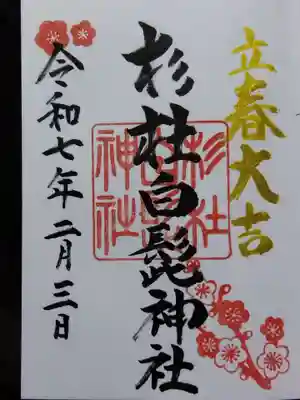 立春大吉
杉杜白髭神社
杉杜
神社
令和七年二月三日